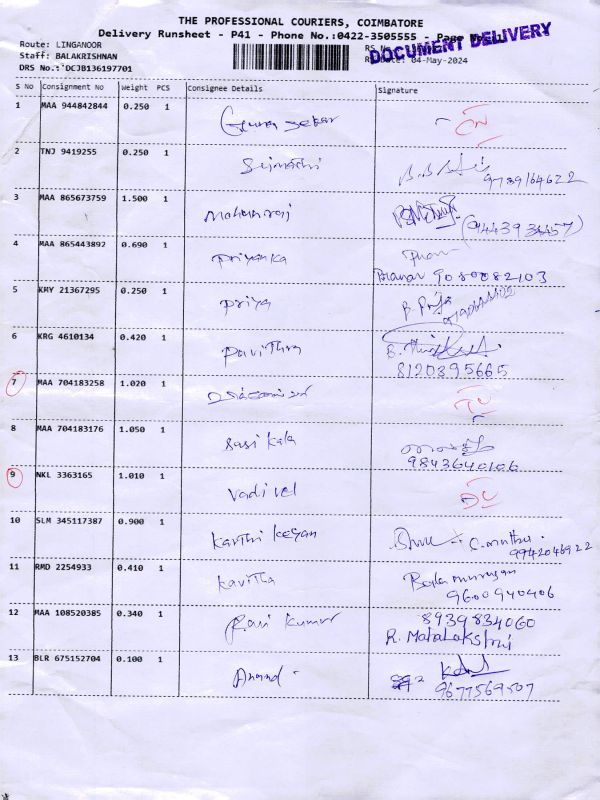 THE PROFESSIONAL COURIERS, COIMBATORE
Delivery Runsheet - P41 - Phone No.:0422-3505555 - Page No.:1
DOCUMENT DELIVERY
Route: LINGANOOR
Staff: BALAKRISHNAN
DRS No.: DCJB136197701
04-May-2024
S No Consignment No Weight PCS Consignee Details Signature
1 MAA 944842844 0.250 1
2 TNJ 9419255 0.250 1
9789164622
3 MAA 865673759 1.500 1 Maharaj
4 MAA 865443892 0.690 1 Priyanka
9080082103
5 KRY 21367295 0.250 1 Priya B. Priya
6 KRG 4610134 0.420 1 Pavithra
8120395665
7 MAA 704183258 1.020 1
8 MAA 704183176 1.050 1 Sasi kala
9843640106
9 NKL 3363165 1.010 1 Vadivel
10 SLM 345117387 0.900 1 Karthi keyan
9942046922
11 RMD 2254933 0.410 1 Kavitha Balamurugan
9600940406
12 MAA 108520385 0.340 1 Ravi kumar 8939834060
R. Mahalakshmi
13 BLR 675152704 0.100 1 Anand
9677569507